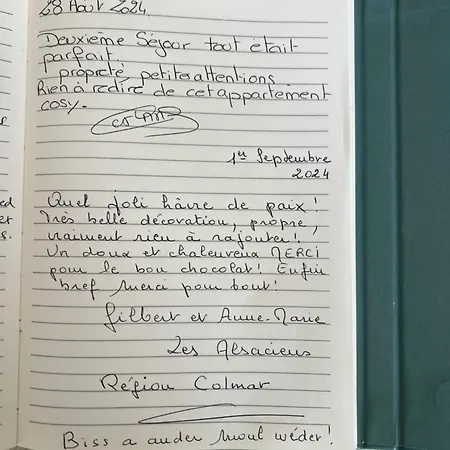 28 Août 2024.
Deuxième Séjour tout était
parfait.
propreté, petites attentions
Rien à redire de cet appartement
cosy.
1er Septembre
2024
Quel joli hâvre de paix !
Très belle décoration, propre,
vraiment rien à rajouter !
Un doux et chaleureux MERCI
pour le bon chocolat ! Enfin
bref Merci pour tout !
Gilbert et Anne-Marie
Les Alsaciens
Région Colmar
Biss a ander Moul wéder !